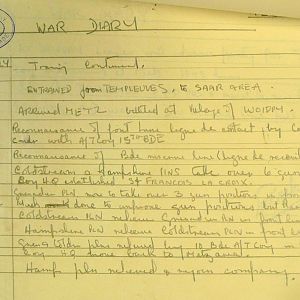 WAR DIARY
Training Continued.
ENTRAINED from TEMPLEUVES, to SAAR AREA.
Arrived METZ billeted at Village of WOIPPY.
Reconnaissance of front line ligne de contact, by Coy
Comdr with A/T Coy 15th BDE
Reconnaissance of Bde reserve line (Ligne de recueil
Coldstream & Hampshire PLNS take over 6 gun
Coy HQ established ST FRANCOIS LA CROIX.
Grenadier PLN now to take over 3 gun positions in front
Much done to improve gun positions but
Coldstream PLN relieve Grenadier PLN in front line
Hampshire PLN relieve Coldstream PLN in front
Grenadier plns relieved by 10 Bde A/T Coy
Coy HQ move back to
Hamp pln relieved & rejoin company.